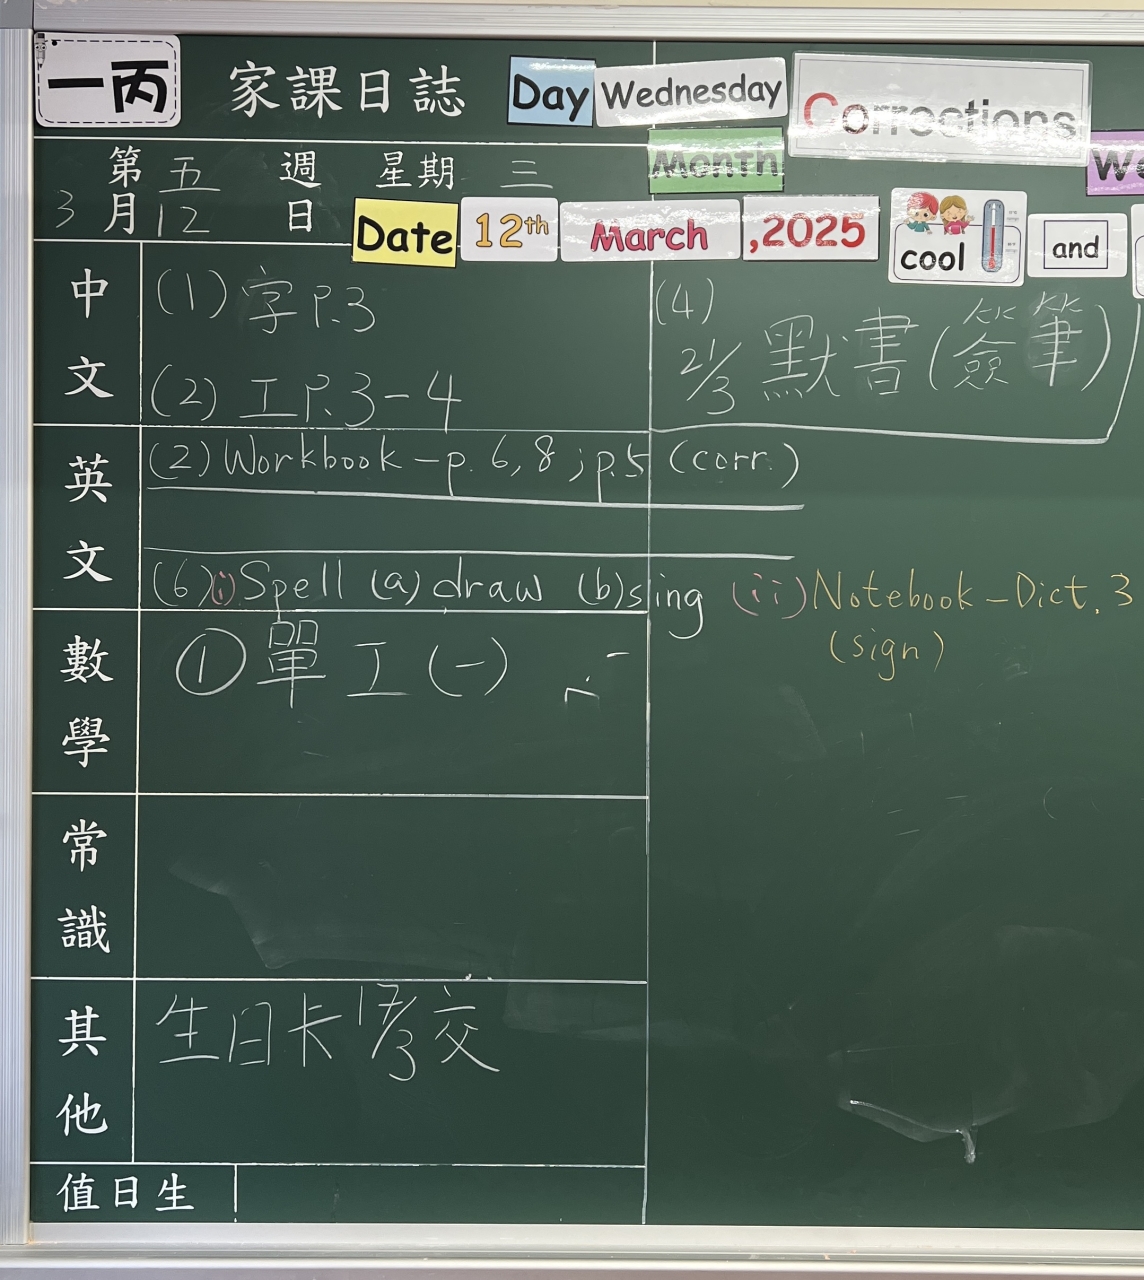 一丙 家課日誌 Day Wednesday Corrections
第五週 星期三 Month
3月12日 Date 12th March ,2025 cool and
中文 (1) 字 P.3 (4)
21/3 默書(簽筆)
(2) 工 P.3-4
英文 (2) Workbook-p. 6,8 ; p.5 (corr.)
(6)(i) Spell (a) draw (b) sing (ii) Notebook-Dict. 3
(sign)
數學 ① 單 工 (一)
常識
其他 生日卡 17/3 交
值日生